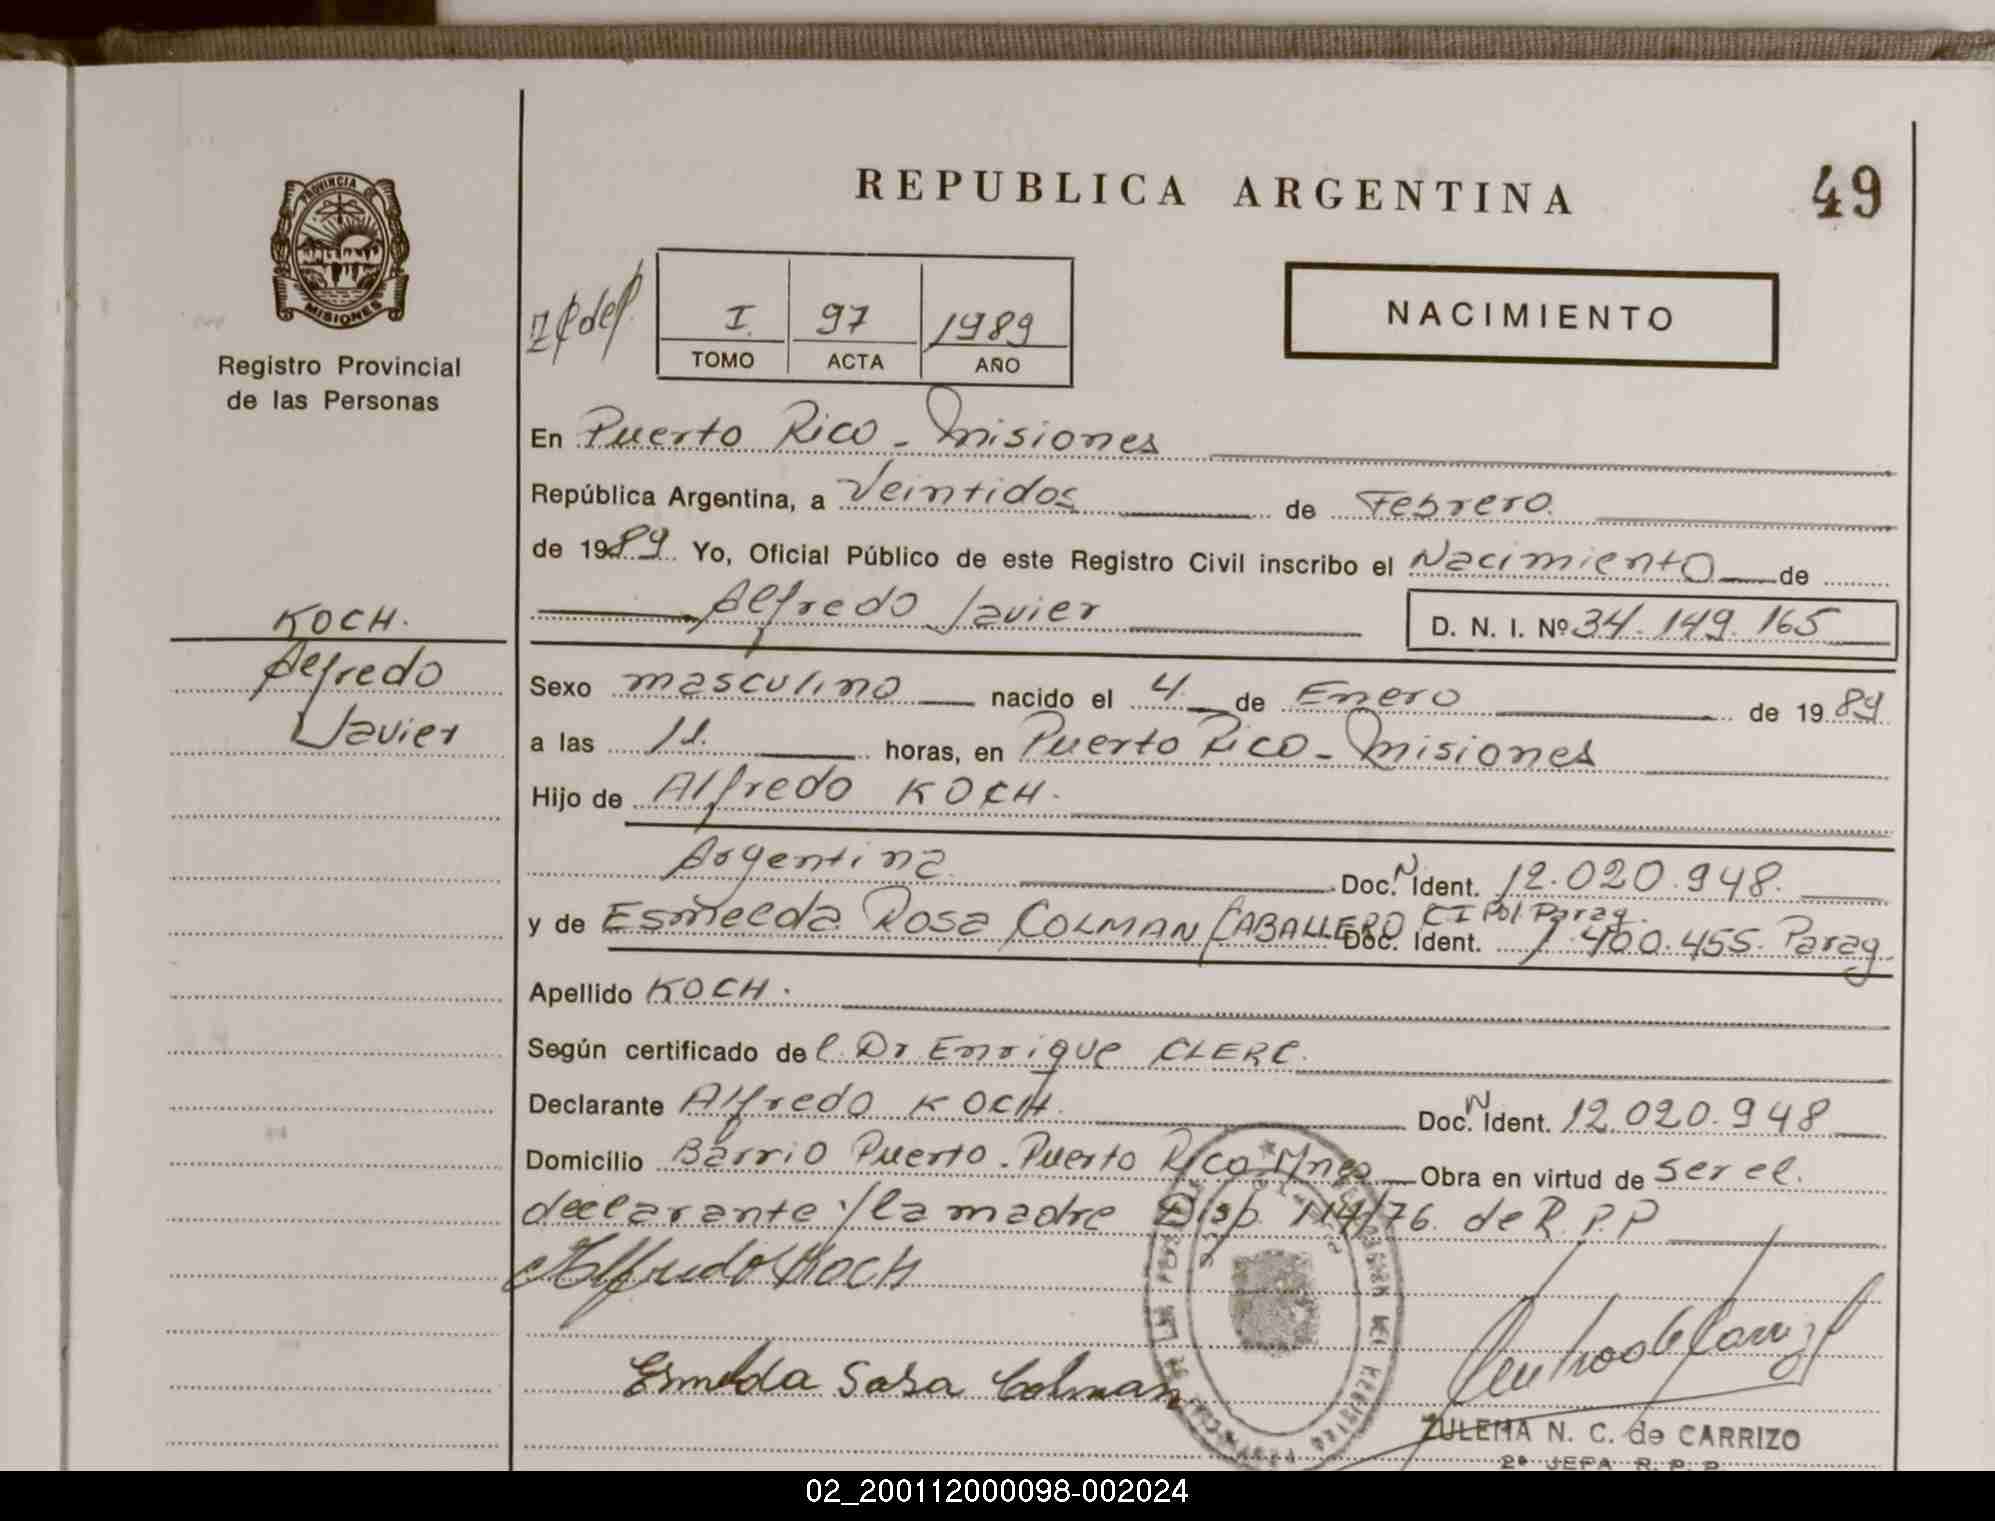 REPUBLICA ARGENTINA
49
PROVINCIA
MISIONES
Registro Provincial
de las Personas
I
97
1989
TOMO
ACTA
AÑO
NACIMIENTO
En Puerto Rico - Misiones
República Argentina, a Veintidos de Febrero
de 1989 Yo, Oficial Público de este Registro Civil inscribo el Nacimiento de
Alfredo Javier
D. N. I. Nº 34.149.165
KOCH.
Alfredo
Javier
Sexo masculino nacido el 4 de Enero de 1989
a las 11. horas, en Puerto Rico - Misiones
Hijo de Alfredo KOCH.
Argentina Doc. N Ident. 12.020.948.
y de Esmelda Rosa COLMAN CABALLERO CI Pol. Parag. Doc. Ident. 1.400.455. Parag.
Apellido KOCH.
Según certificado del Dr Enrique CLERC.
Declarante Alfredo KOCH. Doc. N Ident. 12.020.948
Domicilio Barrio Puerto. Puerto Rico Mnes Obra en virtud de ser el
declarante y/ la madre Disp. 114/76. de R.P.P
Alfredo KOCH
Esmelda Sosa Colman
ZULEMA N. C. de CARRIZO
2ª JEFA R. P. P.
02_200112000098-002024